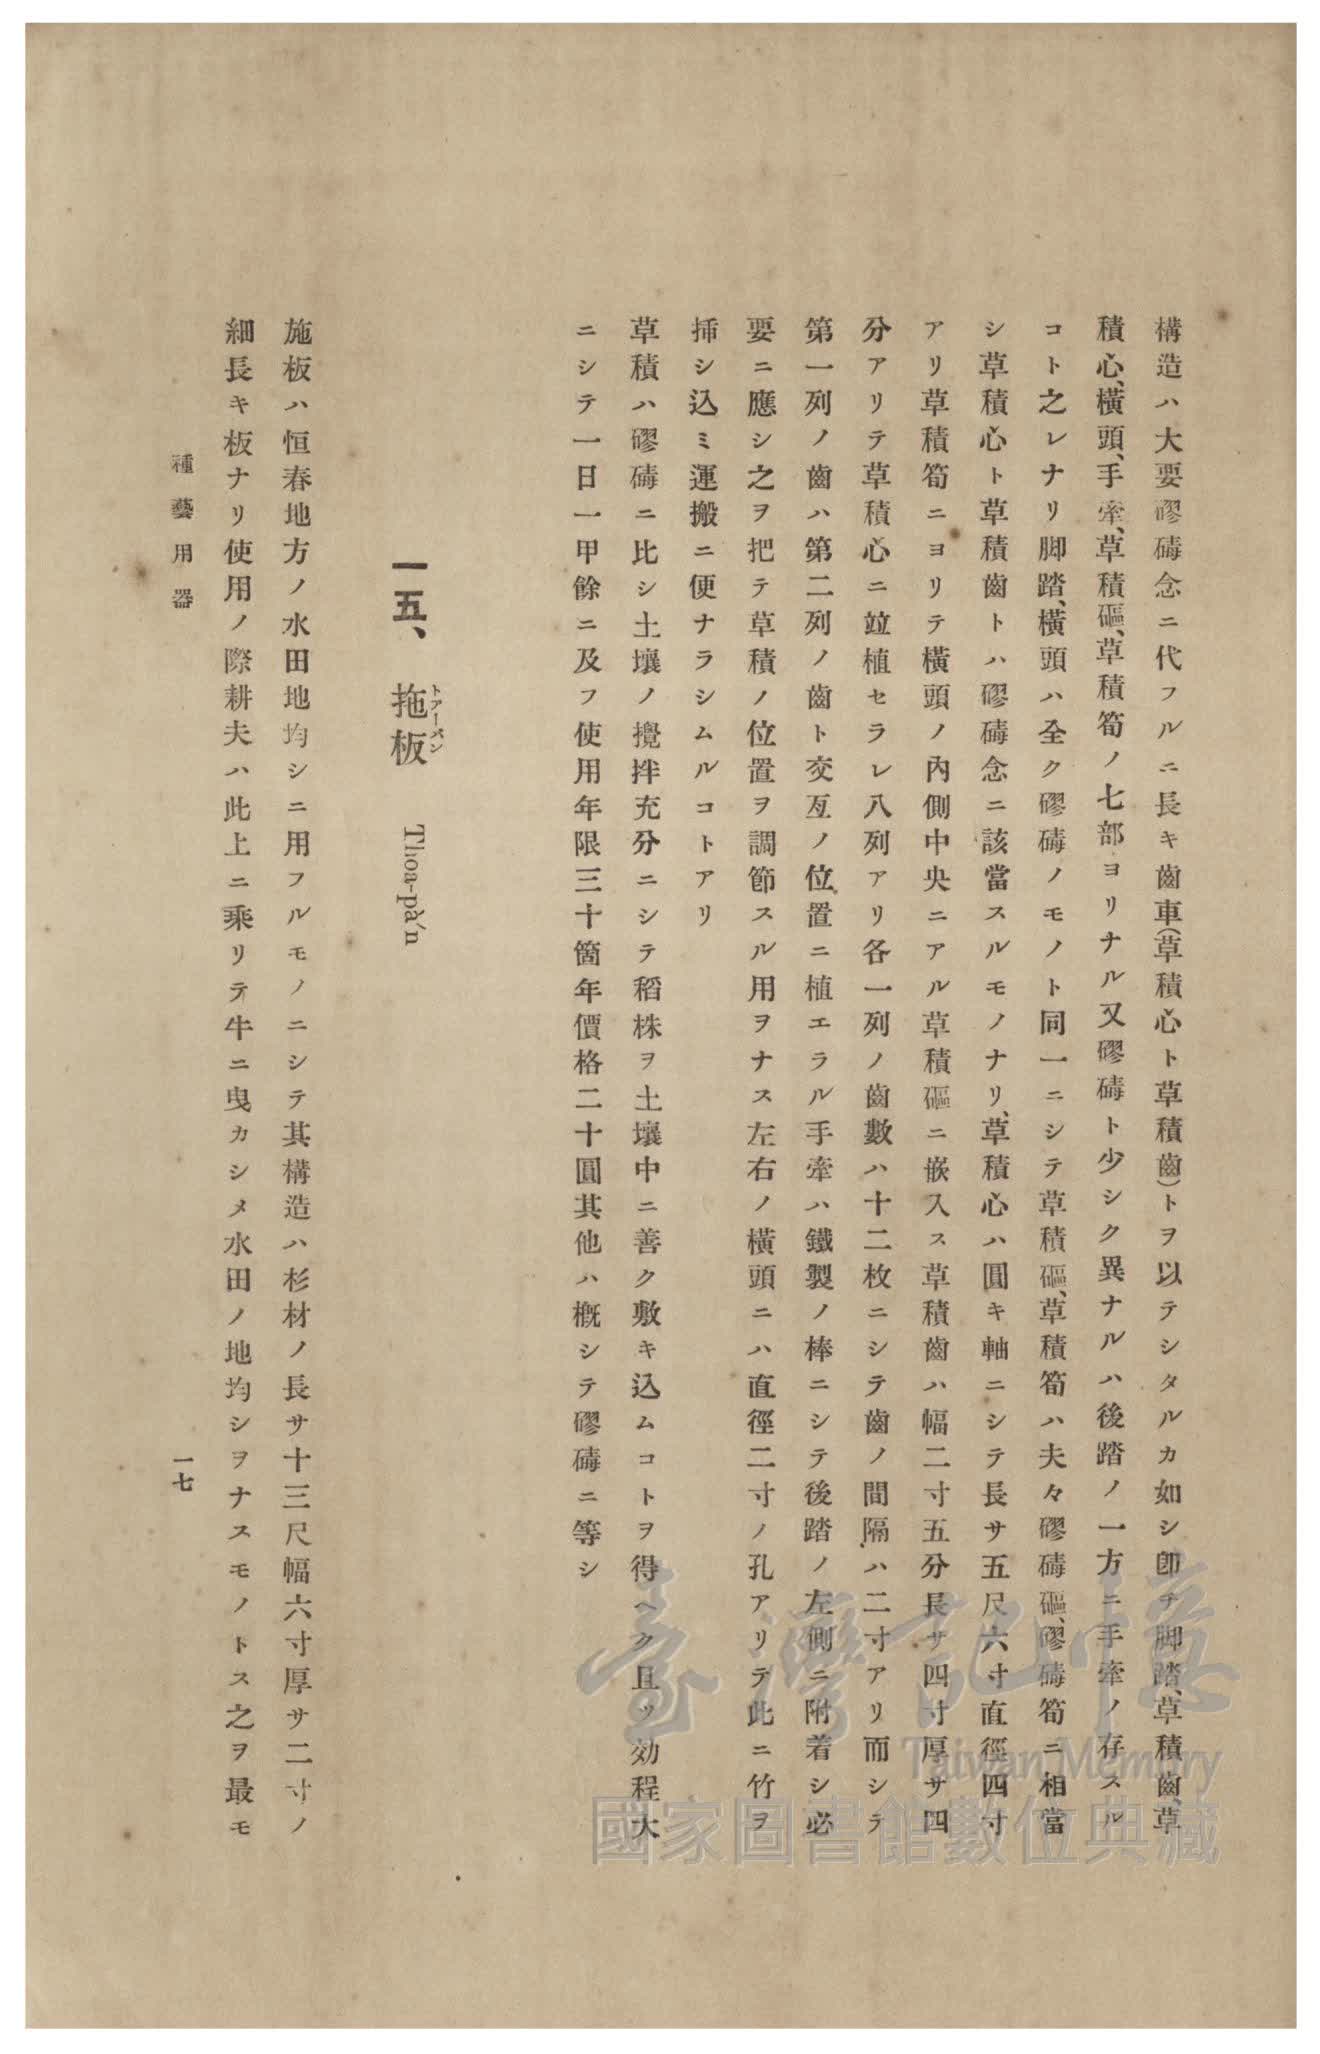 構造ハ大要磟碡念ニ代フルニ長キ齒車(草積心ト草積齒)トヲ以テシタルカ如シ卽チ脚踏、草積齒、草
積心、橫頭、手牽、草積𥕥、草積筍ノ七部ヨリナル又磟碡ト少シク異ナルハ後踏ノ一方ニ手牽ノ存スル
コト之レナリ脚踏、橫頭ハ全ク磟碡ノモノト同一ニシテ草積𥕥、草積筍ハ夫々磟碡𥕥、磟碡筍ニ相當
シ草積心ト草積齒トハ磟碡念ニ該當スルモノナリ、草積心ハ圓キ軸ニシテ長サ五尺六寸直徑四寸
アリ草積筍ニヨリテ橫頭ノ內側中央ニアル草積𥕥ニ嵌入ス草積齒ハ幅二寸五分長サ四寸厚サ四
分アリテ草積心ニ竝植セラレ八列アリ各一列ノ齒數ハ十二枚ニシテ齒ノ間隔ハ二寸アリ而シテ
第一列ノ齒ハ第二列ノ齒ト交互ノ位置ニ植エラル手牽ハ鐵製ノ棒ニシテ後踏ノ左側ニ附着シ必
要ニ應シ之ヲ把テ草積ノ位置ヲ調節スル用ヲナス左右ノ橫頭ニハ直徑二寸ノ孔アリテ此ニ竹ヲ
揷シ込ミ運搬ニ便ナラシムルコトアリ
草積ハ磟碡ニ比シ土壤ノ攪拌充分ニシテ稻株ヲ土壤中ニ善ク敷キ込ムコトヲ得ヘク且ツ効程大
ニシテ一日一甲餘ニ及フ使用年限三十箇年價格二十圓其他ハ槪シテ磟碡ニ等シ
一五、拖板 トアーパン Thoa-pán
施板ハ恒春地方ノ水田地均シニ用フルモノニシテ其構造ハ杉材ノ長サ十三尺幅六寸厚サ二寸ノ
細長キ板ナリ使用ノ際耕夫ハ此上ニ乘リテ牛ニ曳カシメ水田ノ地均シヲナスモノトス之ヲ最モ
種藝用器
一七
臺灣記憶
Taiwan Memory
國家圖書館數位典藏